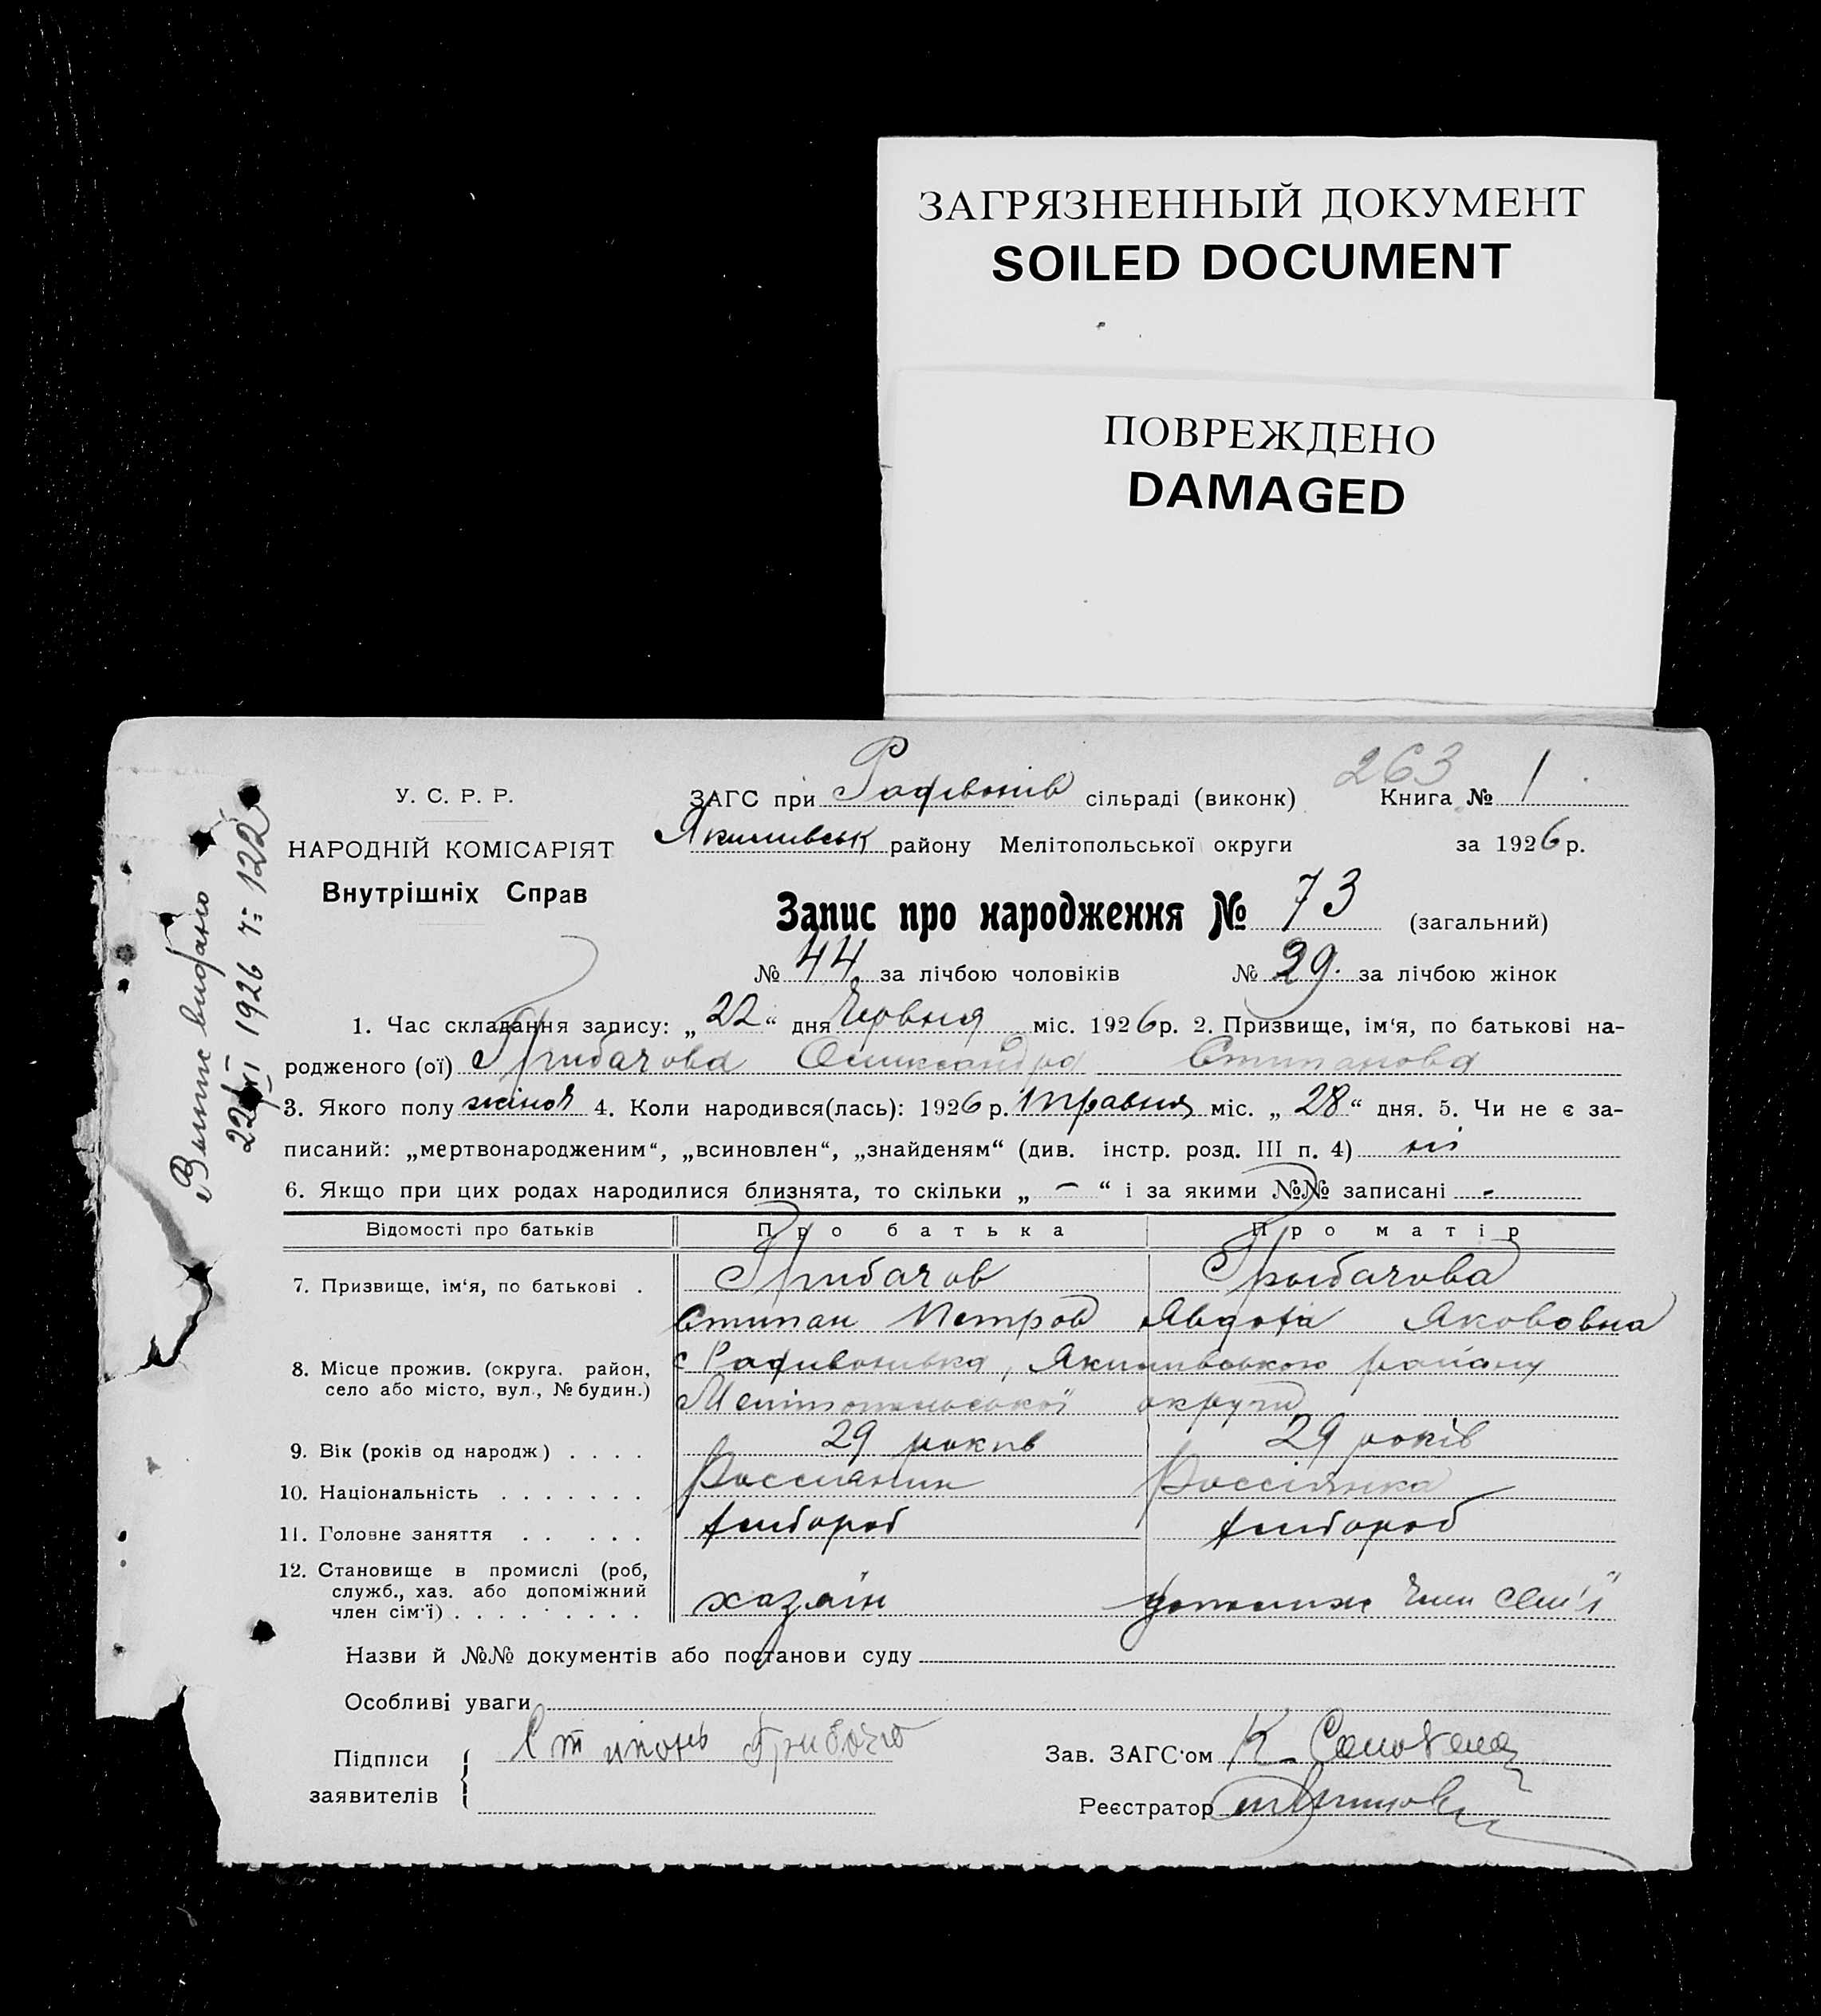 ЗАГРЯЗНЕННЫЙ ДОКУМЕНТ
SOILED DOCUMENT
ПОВРЕЖДЕНО
DAMAGED
263
У. С. Р. Р.
ЗАГС при сільраді (виконк) Книга № 1
НАРОДНІЙ КОМІСАРІЯТ
Якимівськ району Мелітопольської округи за 1926 р.
Внутрішніх Справ
Запис про народження № 73 (загальний)
№ 44 за лічбою чоловіків № 29. за лічбою жінок
1. Час складання запису: „22“ дня Червня міс. 1926 р. 2. Призвище, ім‘я, по батькові на-
родженого (ої) Грибачова Олександра Степанова
3. Якого полу жіноч 4. Коли народився(лась): 1926 р. травня міс. „28“ дня. 5. Чи не є за-
писаний: „мертвонародженим“, „всиновлен“, „знайденям“ (див. інстр. розд. III п. 4) ні
6. Якщо при цих родах народилися близнята, то скільки „ – “ і за якими №№ записані -
Відомості про батьків Про батька Про матір
7. Призвище, ім‘я, по батькові . Грибачов Грыбачова
Степан Петров Авдотя Якововна
8. Місце прожив. (округа, район, село або місто, вул., № будин.) с Радивонивка, Якимівського району
Мелітопольської округи
9. Вік (років од народж) . . . . 29 рокив 29 років
10. Національність . . . . . . . Россиянин Россіянка
11. Головне заняття . . . . . хлибороб хлибороб
12. Становище в промислі (роб, служб., хаз. або допоміжний член сім‘ї) . . . . . . . . . хазяін допомиж член сем'ї
Назви й №№ документів або постанови суду
Особливі уваги
Підписи заявителів
Зав. ЗАГС‘ом К.
Реєстратор
Випис видано
22/VI 1926 г: 122